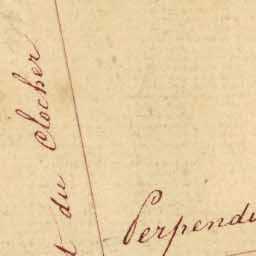 t du clocher
Perpendi